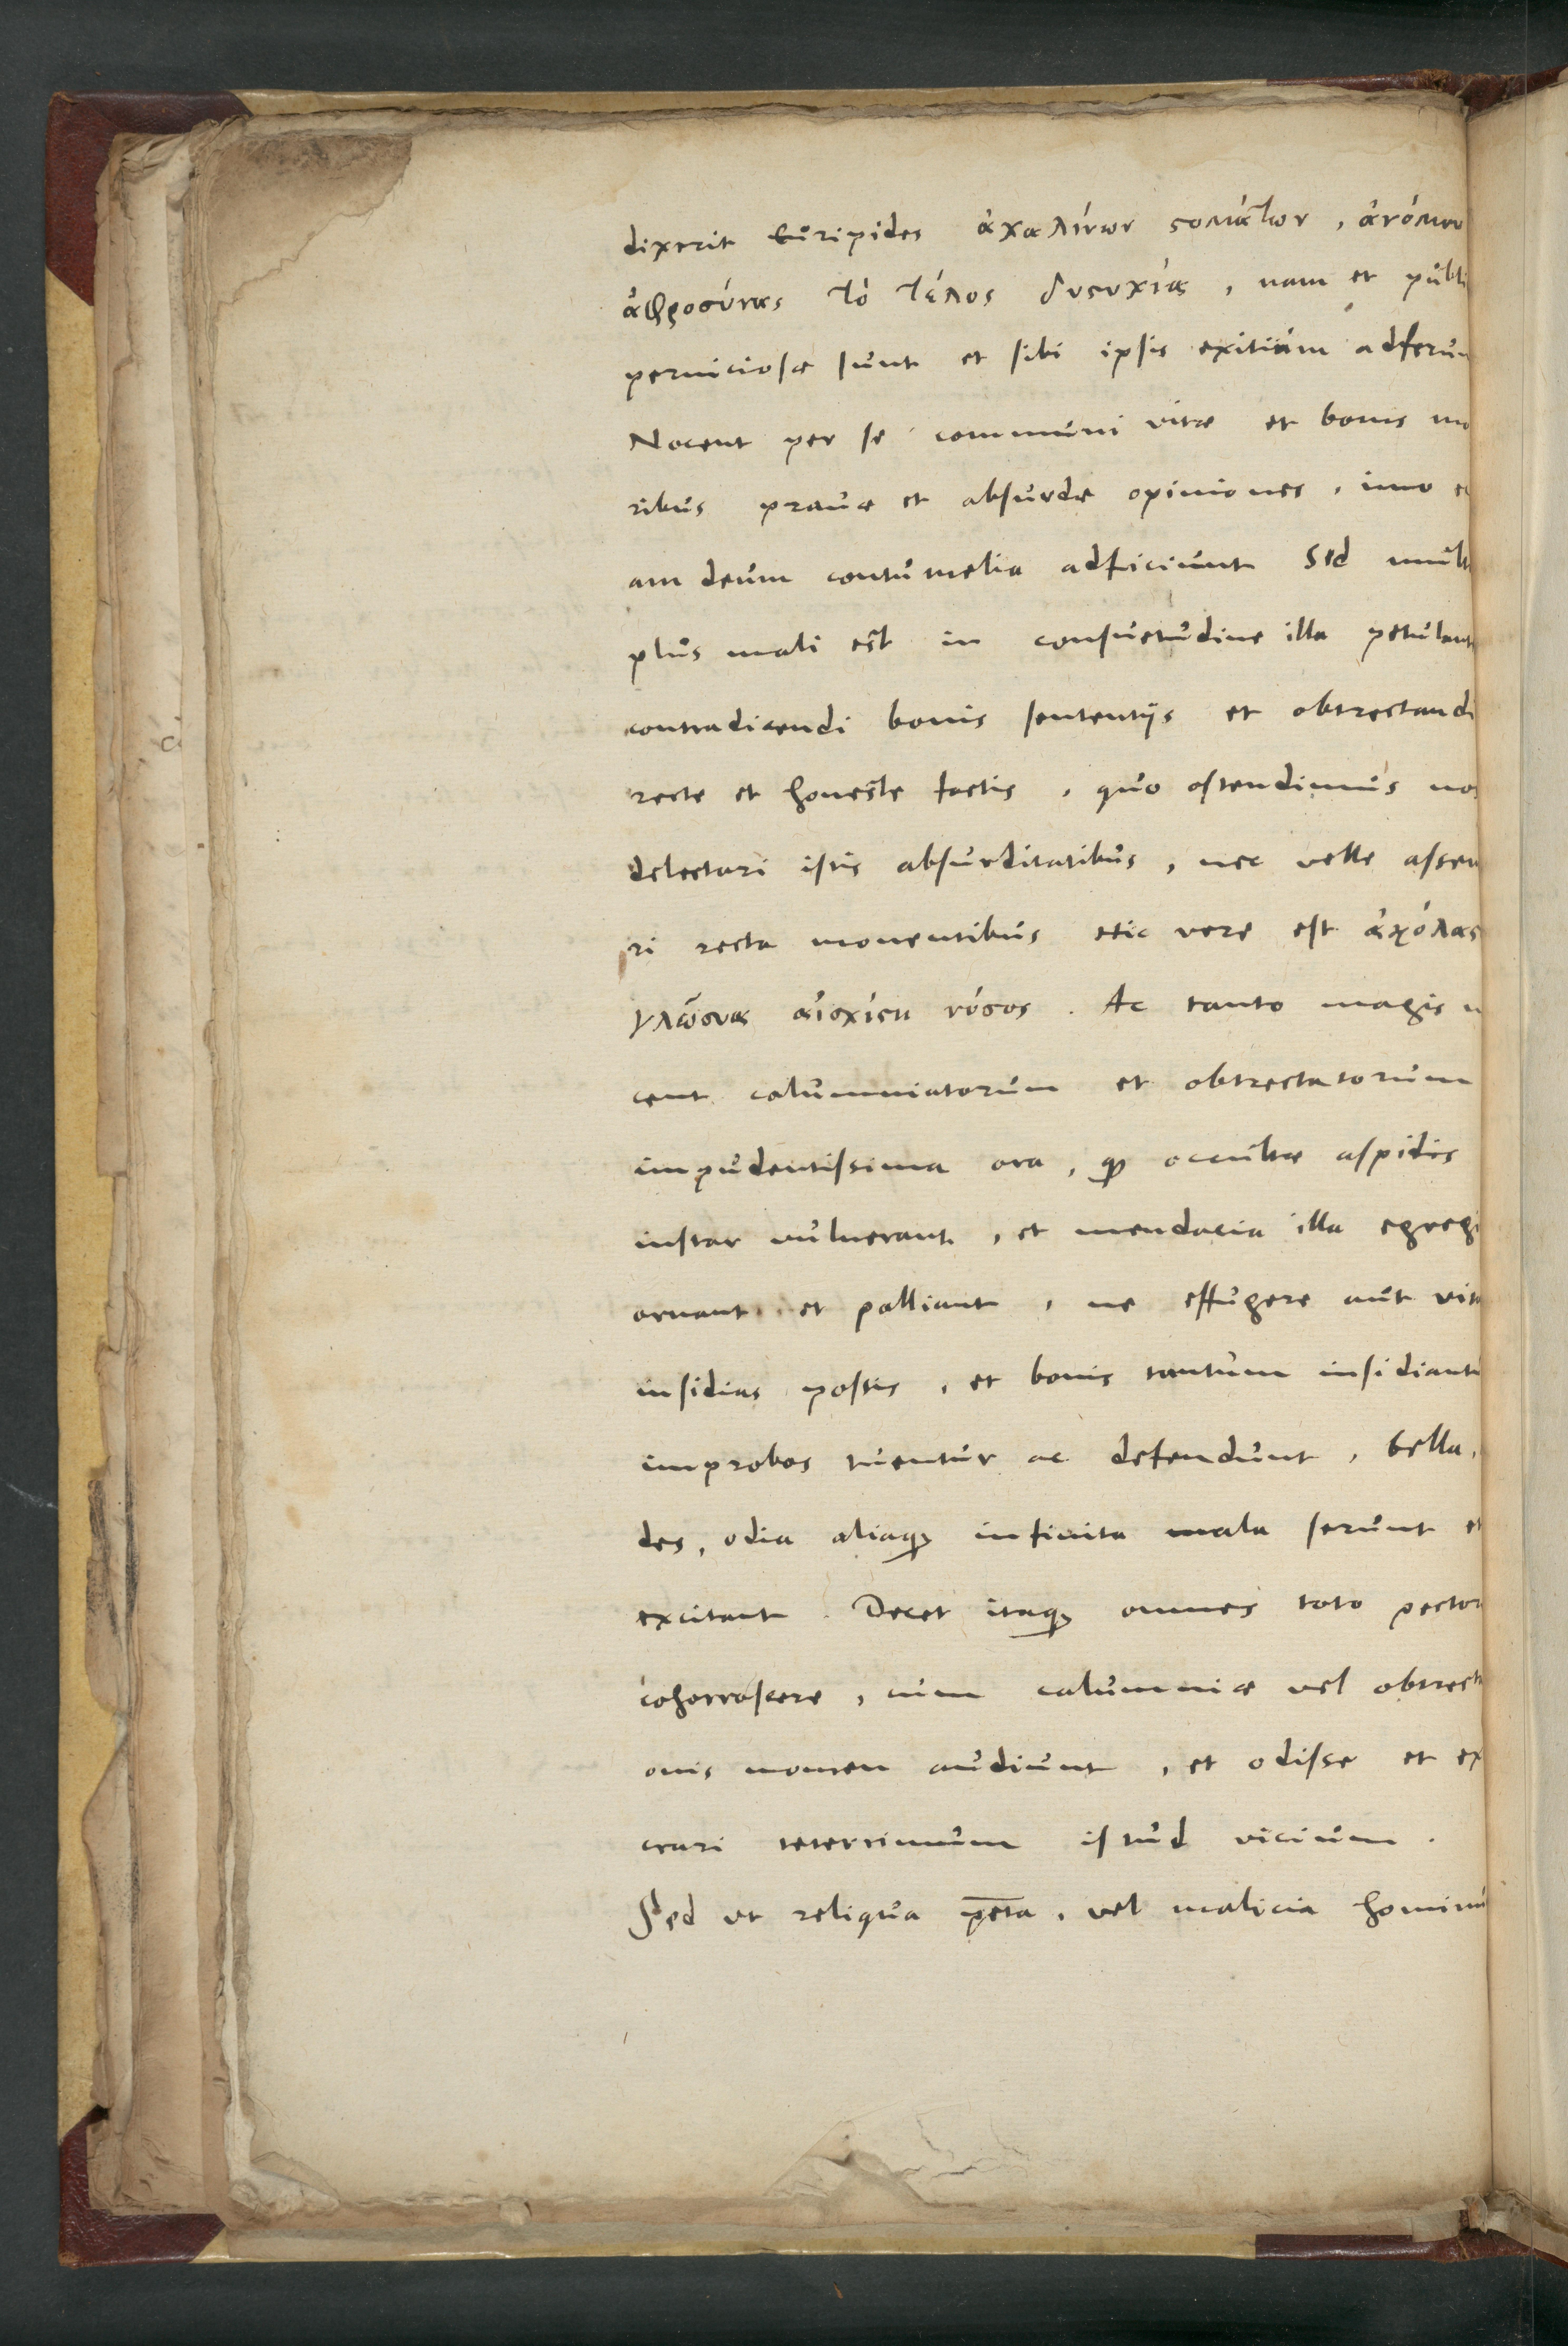 dixerit Euripides ἀχαλίνων στομάτων, ἀνόμου
ἀφροσύνας τὸ τέλος δυστυχία, nam et publi
perniciosæ sunt et sibi ipsis exitium adferun
Nocent per se communi vitæ et bonis mo
ribus prauæ et absurdæ opiniones, imo e
am deum contumelia adficiunt Sed mult
plus mali est in consuetudine illa petulant
contradicendi bonis sententijs et obtrectandi
recte et honeste factis, quo ostendimus nos
delectari istis absurditatibus, nec velle assen
ri recta monentibus etic vere est ἀκόλας
γλώσσας αἰσχίστη νόσος. Ac tanto magis n
cent calumniatorum et obtrectatorum
impudentissima ora, qȝ occultæ aspidis
instar vulnerant, et mendacia illa egregi
ornant et palliant, ne effugere aut vit
insidias possis, et bonis tantum insidiantu
improbos tuentur ac defendunt, bella,
des, odia aliaqȝ infinita mala serunt et
excitant. Decet itaqȝ omnes toto pector
cohorrescere, cum calumniæ vel obtrect
onis nomen audiunt, et odisse et ex
crari teterrimum istud vicium.
Sed vt reliqua pc̄ta, vel malicia hominu